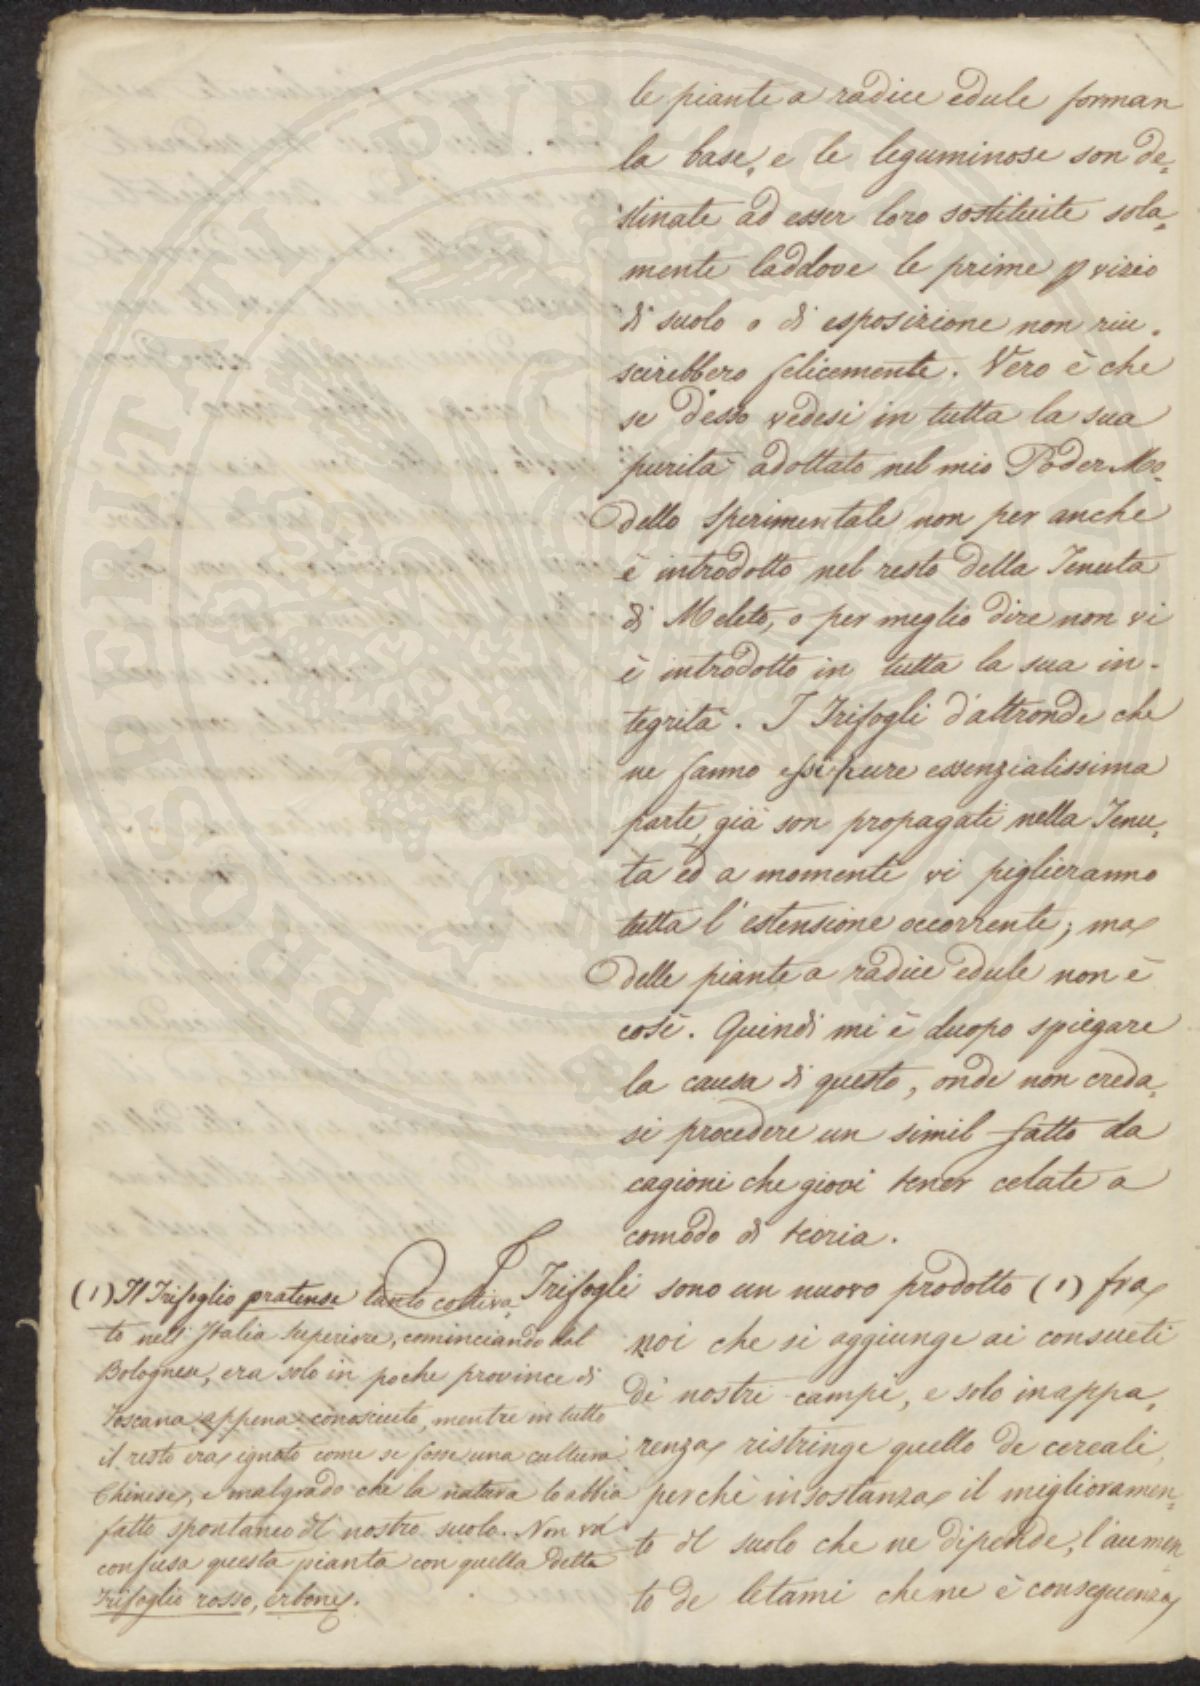 le piante a radice edule forman
la base, e le leguminose son de,
stinate ad esser loro sostituite sola,
mente laddove le prime p vizio
di suolo o di esposizione non riu,
scirebbero felicemente. Vero è che
se desso vedesi in tutta la sua
purità adottato nel mio Poder Mo,
dello Sperimentale non per anche
è introdotto nel resto della Tenuta
di Meleto, o per meglio dire non vi
è introdotto in tutta la sua in-
tegrità. I Trifogli d'altronde che
ne fanno essi pure essenzialissima
parte, già son propagati nella Tenu,
ta ed a momenti vi piglieranno
tutta l'estensione occorrente; ma
delle piante a radice edule non è
così. Quindi mi è duopo spiegare
la causa di questo, onde non creda,
si procedere un simil fatto da
cagioni che giovi tener celate a
comodo di teoria.
I Trifogli sono un nuovo prodotto (1) fra
noi che si aggiunge ai consueti
de nostri campi, e solo in appa,
renza ristringe quello de cereali,
perchè in sostanza il miglioramen,
to del suolo che ne dipende, l'aumen
to de letami che ne è conseguenza
(1) Il Trifoglio pratense tanto coltiva,
to nell'Italia Superiore, cominciando dal
Bolognese, era solo in poche province di
Toscana appena conosciuto, mentre in tutto
il resto era ignoto come se fosse una cultura
Chinese, e malgrado che la natura lo abbia
fatto spontaneo del nostro suolo. Non và
confusa questa pianta con quella detta
Trifoglio rosso, erbone.
PROSPERITATI PUBLICAE